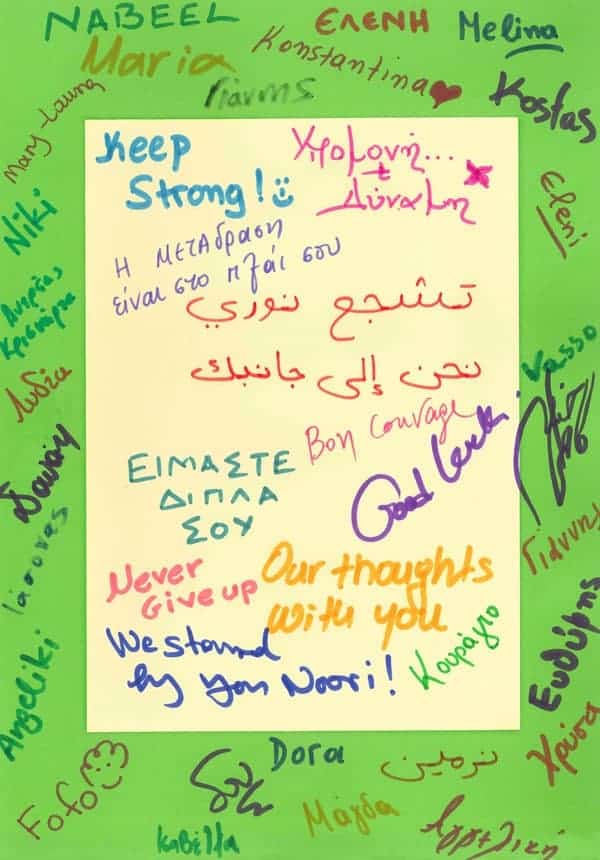 NABEEL
ΕΛΕΝΗ
Melina
Maria
Konstantina
Γιάννης
Kostas
Mary-Laura
Keep
Strong!
Υπομονή...
+
Δύναμη
Eleni
Niki
Η ΜΕΤΑδραση
είναι στο πλάι σου
تشجع نوري
نحن إلى جانبك
Ανδρέας
Λυδία
Vasso
Bon Courage
Good Luck
Δανάη
ΕΙΜΑΣΤΕ
ΔΙΠΛΑ
ΣΟΥ
Ιάσονας
Γιάννης
Never
Give up
Our thoughts
with you
We stand
by you Noori!
Κουράγιο
Ευθύμης
Angeliki
Χρύσα
Fofo
Dora
نرمين
Μάγδα
Κιβέλλα
Αγγελική